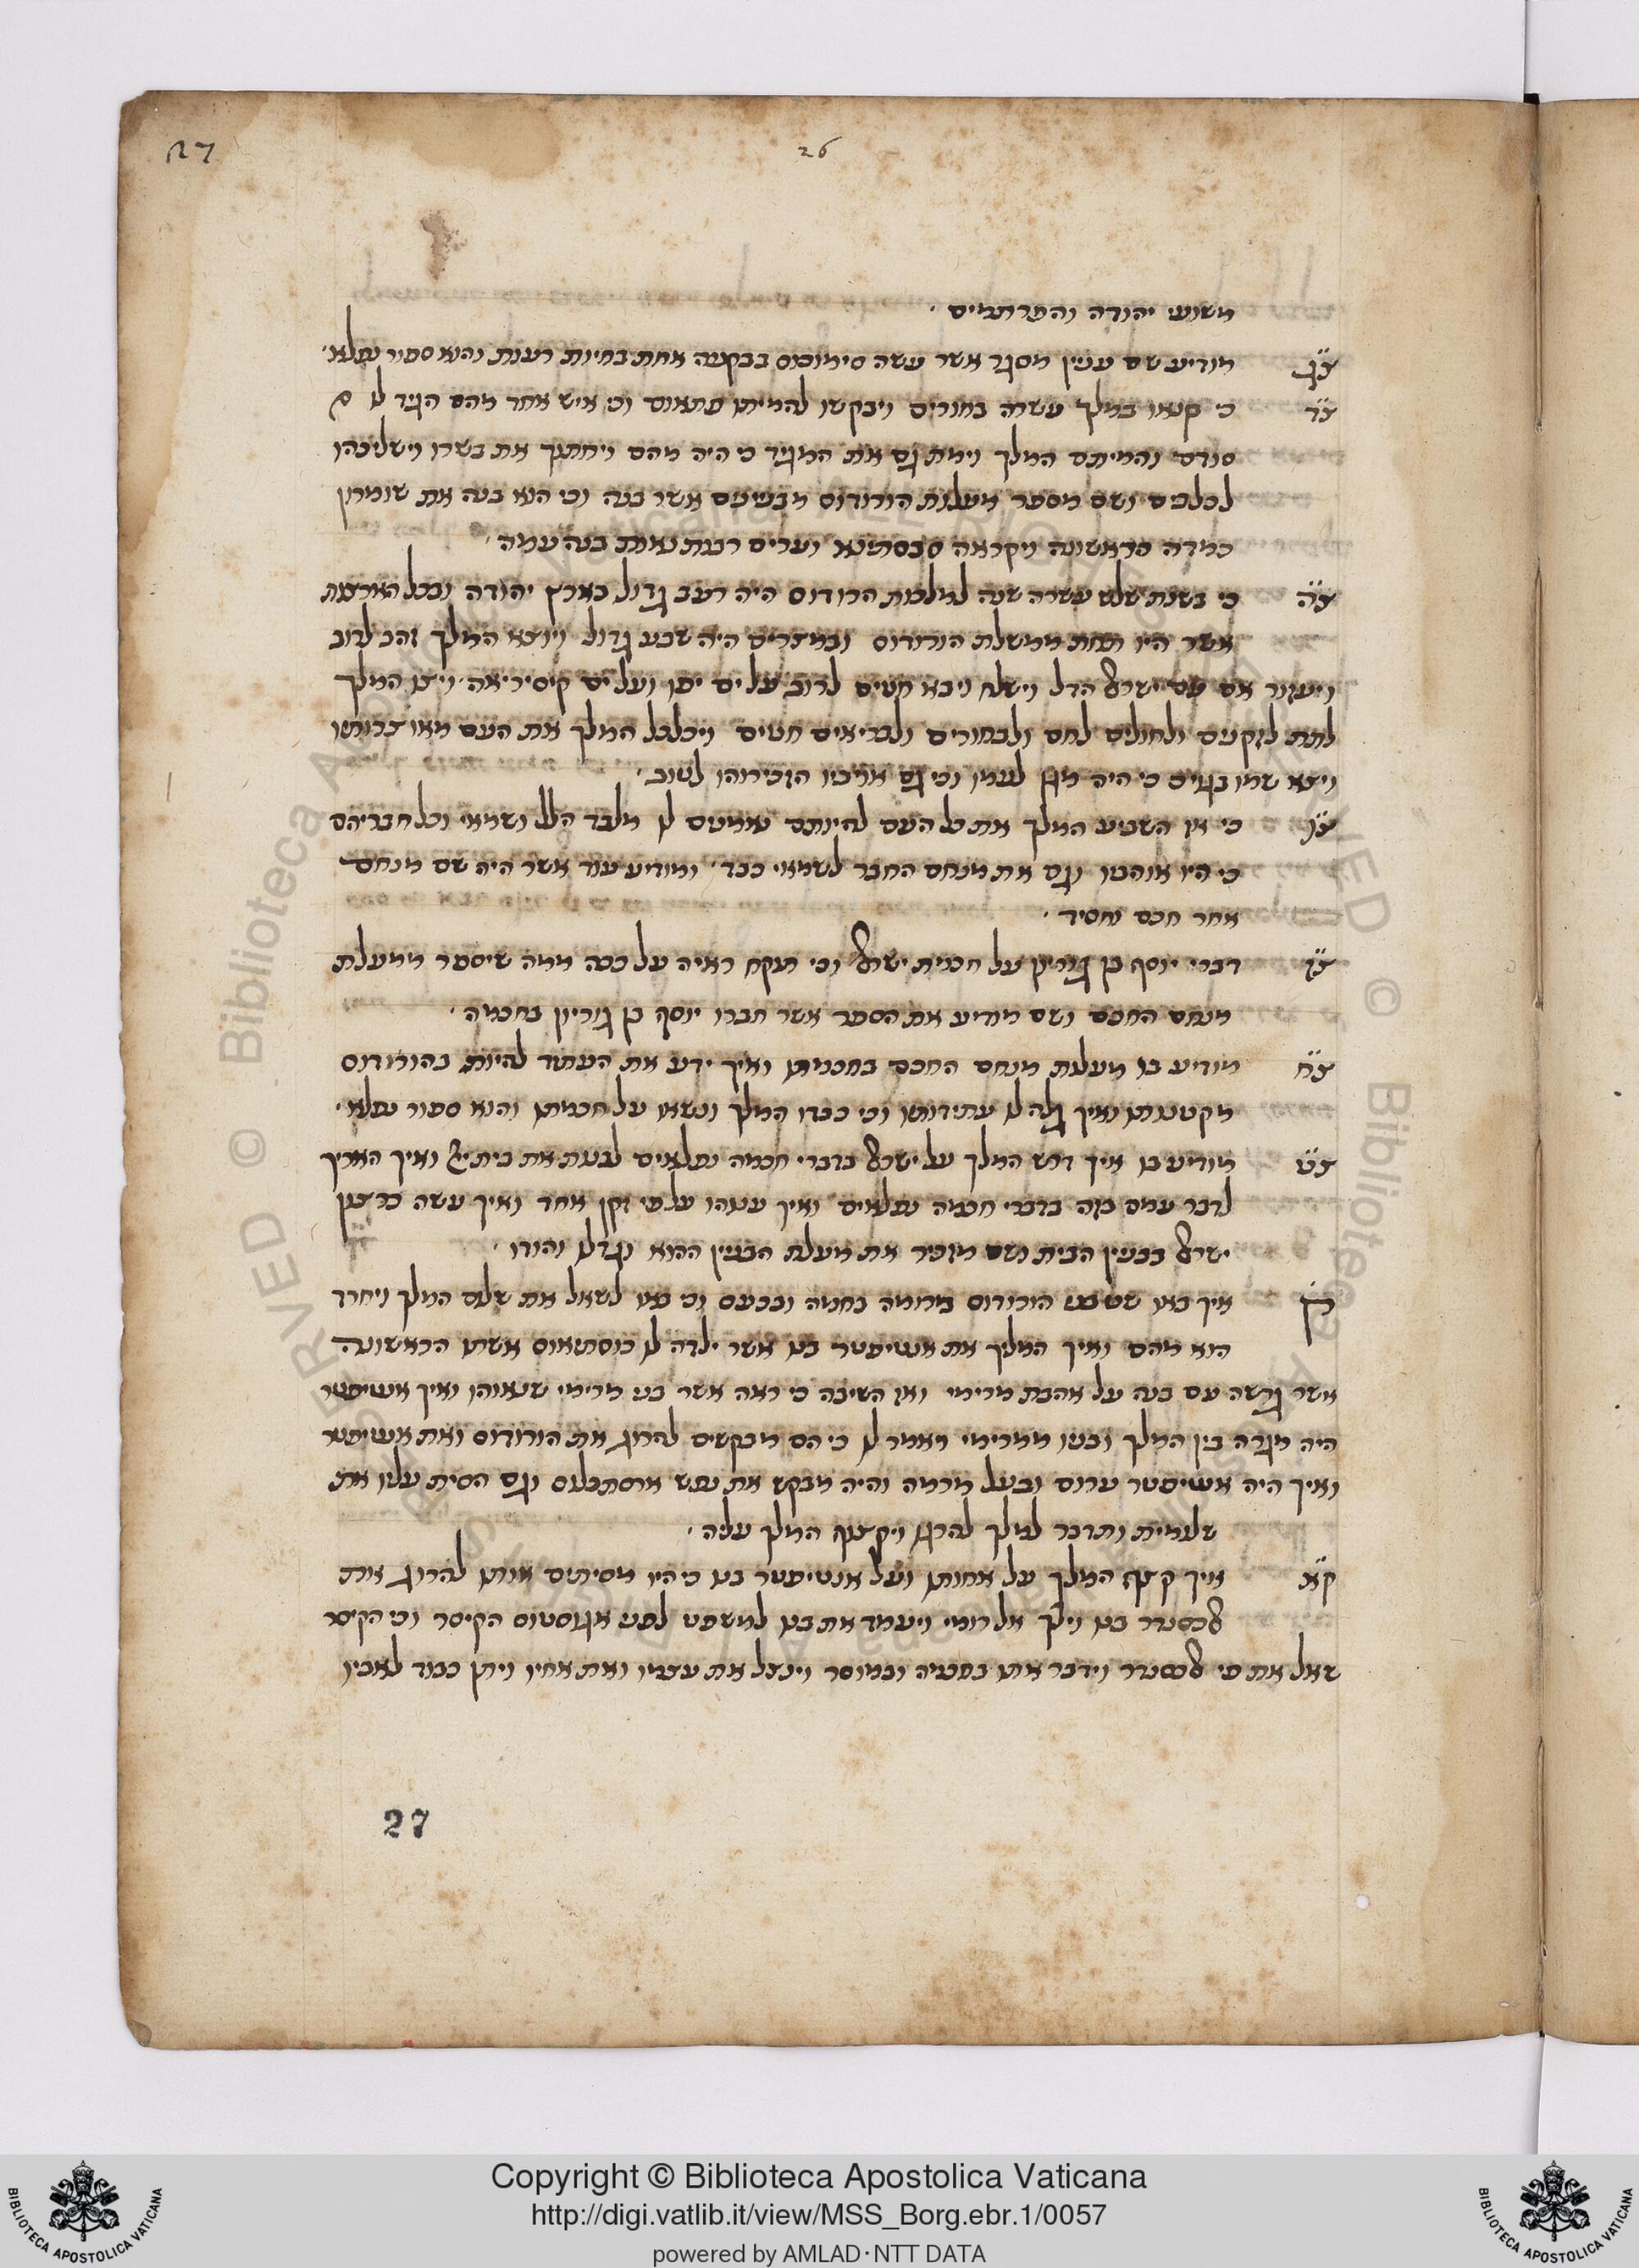 27
26
משועי יהודה והפרתמים
צ״ג מודיע שם עניין מסגר אשר עשה בבקעה אחת בחיות רעות והוא ספור נפלא
צ״ד כי קנאו במלך עשרה בחורים ויבקשו להמיתו פתאום וכי איש אחד מהם הגיד לו
סודם והמיתם המלך וימת גם את המגיד כי היה מהם ויחתך את בשרו וישליכהו
לכלבים ושם מספר מעלות הורודוס מבניינים אשר בנה וכי הוא בנה את שומרון
כמדה הראשונה ויקראה וערים רבות נאות בנה עמה
צ״ה כי בשנת שלש עשרה שנה למלכות הרודוס היה רעב גדול בארץ יהודה ובכל הארצות
אשר היו תחת ממשלת הורודוס ובמצרים היה שבע גדול ויוצא המלך זהב לרוב
ויעזור את עם ישראל הדל וישלח ויבא חטים לרוב על ים יפו ועל ים קיסיריאה ויצו המלך
לתת לזקנים ולחולים לחם ולבחורים ולבריאים חטים ויכלכל המלך את העם מאוצרותיו
ויצא שמו בגוים כי היה מגן לעמו וכי גם אויביו הזכירוהו לטוב
צ״ו כי אז השביע המלך את כל העם להיותם נאמנים לו מלבד הלל ושמאי וכל חבריהם
כי היו אוהביו וגם את מנחם החבר לשמאי כבד ומודיע עוד אשר היה שם מנחם
אחר חכם וחסיד
צ״ז דברי יוסף בן גוריון על חכמת ישראל וכי תקח ראיה על ככה ממה שיספר ממעלת
מנחם החכם ושם מודיע את הספר אשר חברו יוסף בן גוריון בחכמה
צ״ח מודיע בו מעלת מנחם החכם בחכמתו ואיך ידע את העתיד להיות בהורודוס
מקטנותו ואיך גלה לו עתידותיו וכי כבדו המלך ונשאו על חכמתו והוא ספור נפלא
צ״ט מודיע בו איך דרש המלך על ישראל בדברי חכמה נפלאים לבנות את בית ייי ואיך האריך
לדבר עמם בזה בדברי חכמה נפלאים ואיך ענהו על פי זקן אחד ואיך עשה כרצון
ישראל בבניין הבית ושם מזכיר את מעלת הבניין ההוא וגדלו והודו
ק׳ איך באו הורודוס מרומה בחמה ובכעס וכי באו לשאול את שלום המלך ויחרד
הוא מהם ואיך המליך את אנטיפטר בנו אשר ילדה לו אשתו הראשונה
אשר גרשה עם בנה על אהבת מרימי ואז השיבה כי ראה אשר בני מרימי שנאוהו ואיך אנטיפטר
היה מגרה בין המלך ובניו ממרימי ויאמר לו כי הם מבקשים להרוג את הורודוס ואת אנטיפטר
ואיך היה אנטיפטר ערום ובעל מרמה והיה מבקש את נפש וגם הסית עליו את
שלומית ותדבר למלך להרגו ויקצוף המלך עליה
ק״א איך קצף המלך על אחותו ועל אנטיפטר בנו כי היו מסיתים אותו להרוג את
אלכסנדר בנו וילך אל רומי ויעמד את בנו למשפט לפני אגוסטוס הקיסר וכי הקיסר
שאל את פי אלכסנדר וידבר אתו בחכמה ובמוסר וינצל את עצמו ואת אחיו ויתן כבוד לאביו
27
Copyright © Biblioteca Apostolica Vaticana
http://digi.vatlib.it/view/MSS_Borg.ebr.1/0057
powered by AMLAD·NTT DATA
BIBLIOTECA APOSTOLICA VATICANA
BIBLIOTECA APOSTOLICA VATICANA